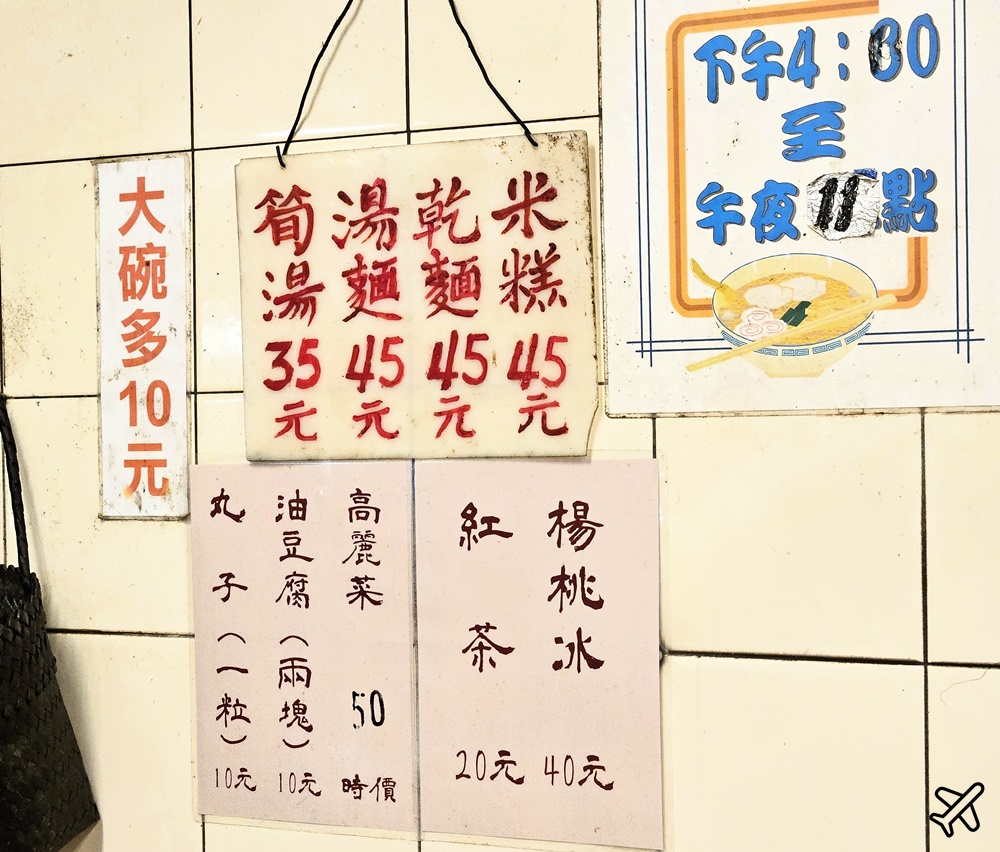 下午4:30
至
午夜11點
米糕45元
乾麵45元
湯麵45元
筍湯35元
大碗多10元
楊桃冰 40元
紅茶 20元
高麗菜 50 時價
油豆腐（兩塊）10元
丸子（一粒）10元